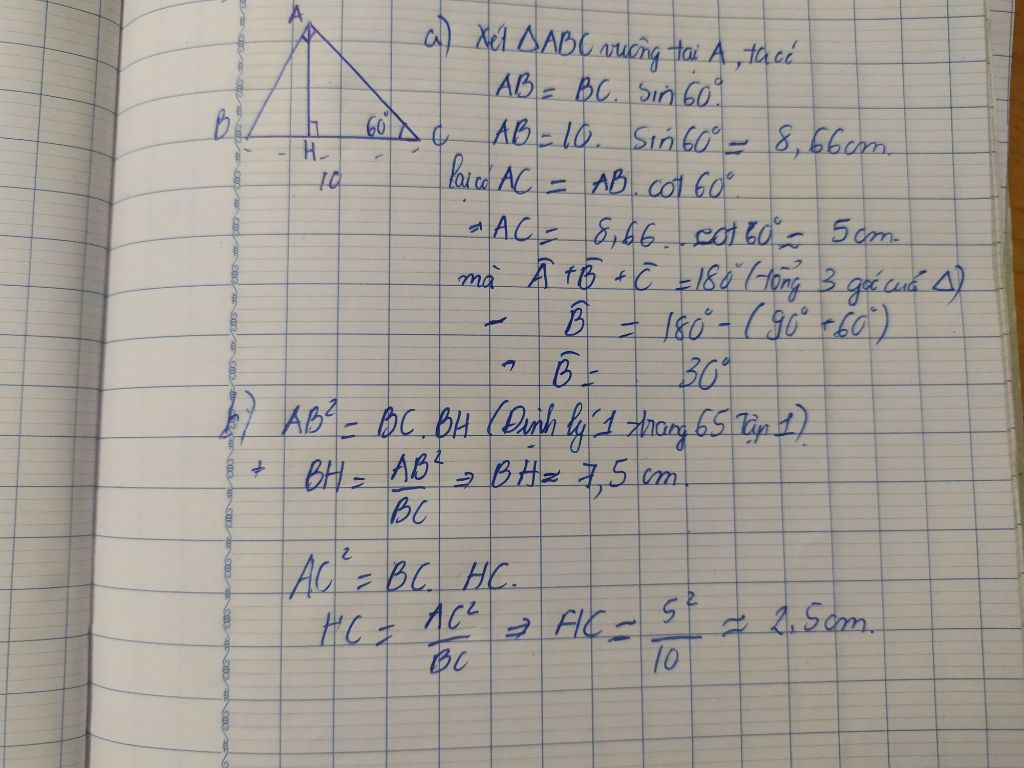 A
B
H
C
60°
10
a) Xét ΔABC vuông tại A, ta có
AB = BC. Sin 60°
AB = 10. Sin 60° = 8,66cm.
Lại có AC = AB. cot 60°
AC = 8,66. cot 60° ≈ 5cm.
mà Â + B̂ + Ĉ = 180° (tổng 3 góc của Δ)
- B̂ = 180° - (90° + 60°)
B̂ = 30°
b) AB² = BC. BH (Định lý 1 trang 65 Tập 1)
+ BH = AB²/BC ⇒ BH ≈ 7,5 cm.
AC² = BC. HC.
HC = AC²/BC ⇒ HC = 5²/10 ≈ 2,5cm.